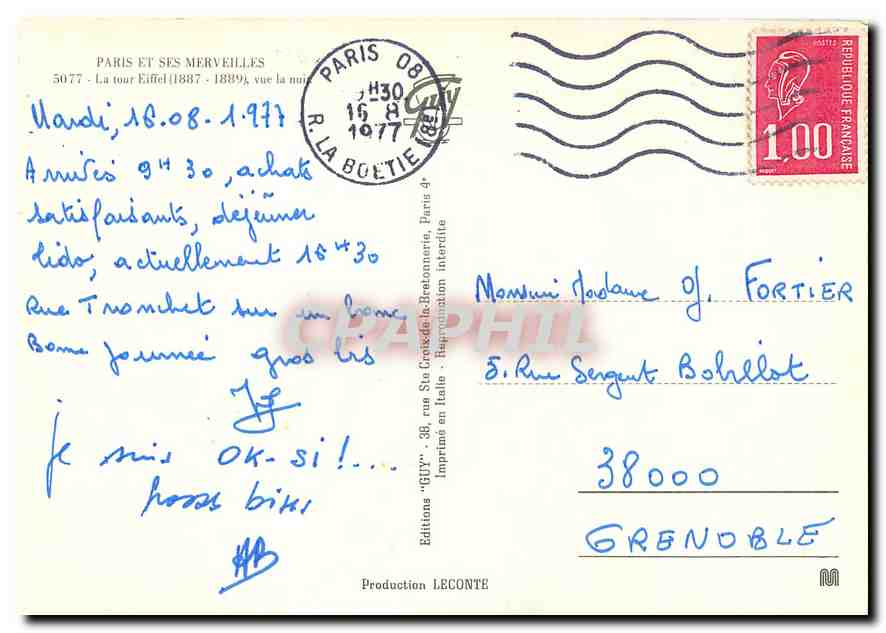 PARIS ET SES MERVEILLES
5077 - La tour Eiffel (1887 - 1889), vue la nuit
Mardi, 16.08.1977
Arrivés 9H30, achats
satisfaisants, déjeuner
lido, actuellement 16H30
Rue Tronchet sur un banc
Bonne journée gros bis
je suis OK-si !....
bises
AB
PARIS 08
H30
16 8
1977
R. LA BOETIE (8e)
Guy
POSTES
REPUBLIQUE FRANÇAISE
1,00
BEQUET
Editions "GUY" - 38, rue Ste Croix-de-la-Bretonnerie, Paris 4e
Imprimé en Italie - Reproduction interdite
CPAPHIL
Monsieur Madame FORTIER
5. Rue Sergent Bobillot
38000
GRENOBLE
Production LECONTE
M